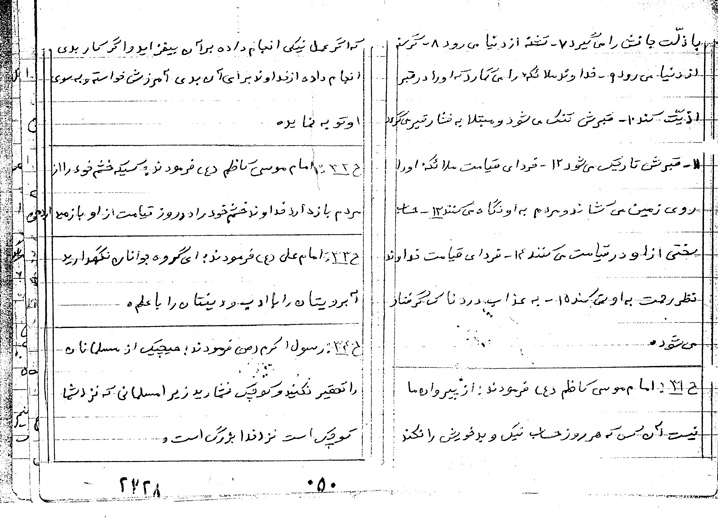 با ذلّت جانش را می گیرد ۷- تشنه از دنیا می رود ۸- گرسنه
از دنیا می رود ۹- خداوند ملائکه را می گمارد که او را در قبر
اذیّت کنند ۱۰- قبرش تنگ می شود و مبتلا به فشار قبر می گردد
۱۱- قبرش تاریک می شود ۱۲- فردای قیامت ملائکه او را
روی زمین می کشانند و مردم به او نگاه می کنند ۱۳- حساب
سختی از او در قیامت می کنند ۱۴- فردای قیامت خداوند
نظر رحمت به او نمی کند ۱۵- به عذاب دردناکی گرفتار
می شود.
ح ۳۱: امام موسی کاظم (ع) فرمودند: از پیروان ما
نیست آن کس که هر روز حساب نیک و بد خویش را نکند
که اگر عمل نیکی انجام داده بر آن بیفزاید و اگر کار بدی
انجام داده از خداوند برای آن بدی آمرزش خواسته و به سوی
او توبه نماید.
ح ۳۲: امام موسی کاظم (ع) فرمودند: کسیکه خشم خود را از
مردم باز دارد خداوند خشم خود را در روز قیامت از او باز می دارد
ح ۳۳: امام علی (ع) فرمودند: ای گروه جوانان نگهدارید
آبرویتان را با ادب و دینتان را با علم.
ح ۳۴: رسول اکرم (ص) فرمودند: هیچیک از مسلمانان
را تحقیر نکنید و کوچک نشمارید زیرا مسلمانی که نزد شما
کوچک است نزد خدا بزرگ است.
۰۵۰
۲۳۲۸